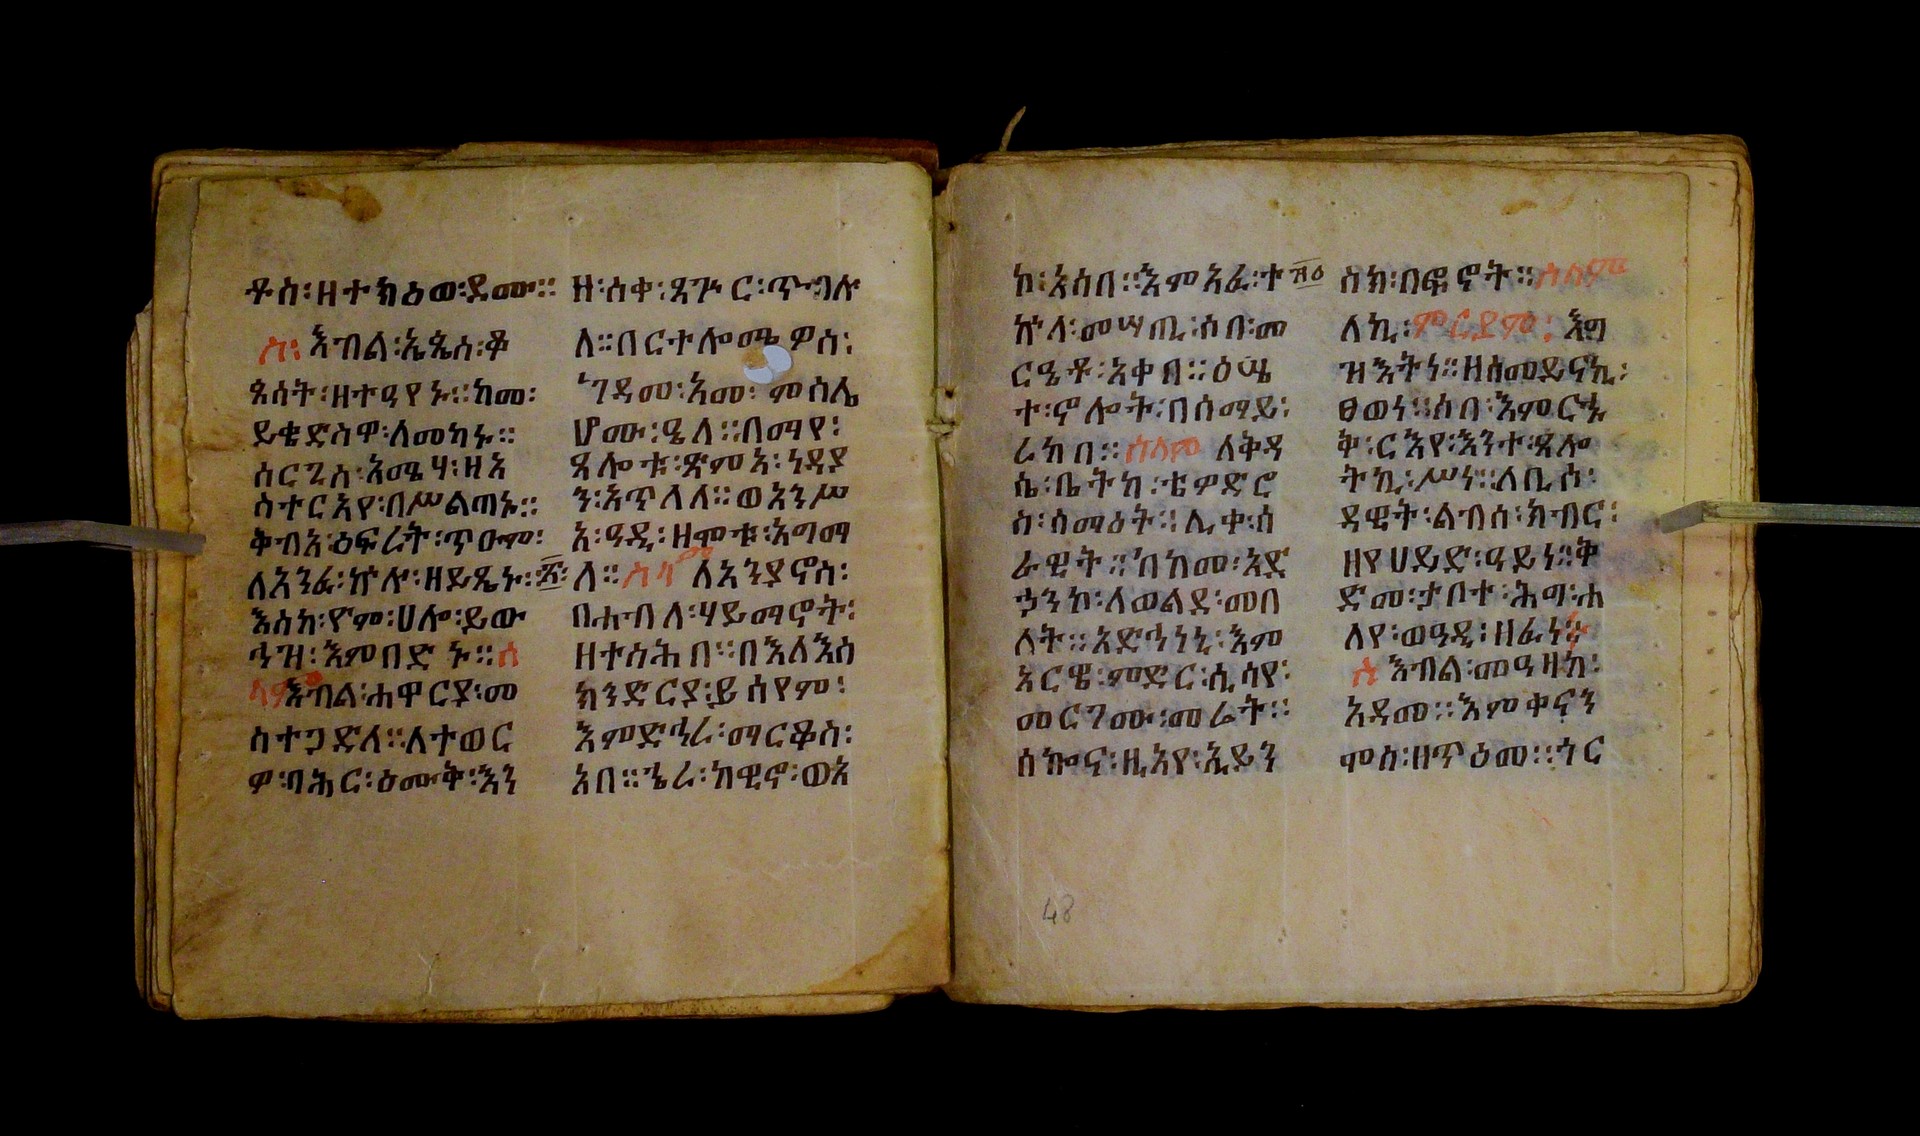 ቶስ፡ዘተክዕወ፡ደሙ።
ስ፡እብል፡ኤጲስ፡ቆ
ጶሳት፡ዘተዓየኑ።ከመ፡
ይቄድስዋ፡ለመካኑ።
ሰርጊስ፡አሜሃ፡ዘአ
ስተርአየ፡በሥልጣኑ።
ቅብአ፡ዕፍረት፡ጥዑም፡
ለአንፈ፡ኵሎ፡ዘይጼኑ፡
እስከ፡ዮም፡ሀሎ፡ይው
ኅዝ፡እምበድኑ።ሰ
ላምእብል፡ሐዋርያ፡መ
ስተጋድለ።ለተወር
ዎ፡ባሕር፡ዕሙቅ፡እን
ዘ፡ሰቀ፡ጸጕር፡ጥብሉ
ለ።በርተሎሜዎስ፡
ገዳመ፡አመ፡ምስሌ
ሆሙ፡ዔለ።በማየ፡
ጸሎቱ፡ጽምአ፡ነዳያ
ን፡አጥለለ።ወአንሥ
አ፡ዓዲ፡ዘሞቱ፡አግማ
ለ።ሰላም ለአንያኖስ፡
በሐብለ፡ሃይማኖት፡
ዘተስሕበ።በእለእስ
ክንድርያ፡ይሰየም፡
እምድኅረ፡ማርቆስ፡
አበ።ኄራ፡ከዊኖ፡ወአ
ኮ፡አሰበ።እምአፈ፡ተ
ኵላ፡መሣጢ፡ሶበ፡መ
ርዔቶ፡አቀበ።ዕሤ
ተ፡ኖሎት፡በሰማይ፡
ረከበ።ሰላም ለቅዳ
ሴ፡ቤትከ፡ቴዎድሮ
ስ፡ሰማዕት።ሊቀ፡ሰ
ራዊት።በከመ፡አድ
ኃንኮ፡ለወልደ፡መበ
ለት።አድኅነኒ፡እም
አርዌ፡ምድር፡ሲሳየ፡
መርገሙ፡መሬት።
ሰኰና፡ዚአየ፡ኢይን
ስክ፡በፍኖት።ሰላም
ለኪ፡ምርያም፡እግ
ዝእትነ።ዘሰመይናኪ፡
ፅወነ።ሶበ፡እምርኁ
ቅ፡ርእየ፡እንተ፡ጸሎ
ትኪ፡ሥነ።ለቢሰ፡
ዳዊት፡ልብሰ፡ክብር፡
ዘየሀይድ፡ዓይነ።ቅ
ድመ፡ታቦተ፡ሕግ፡ሐ
ለየ፡ወዓዲ፡ዘፈነ።
ሰ እብል፡መዓዛከ፡
አዳመ።እምቀናን
ሞስ፡ዘጥዕመ።ጎር
48